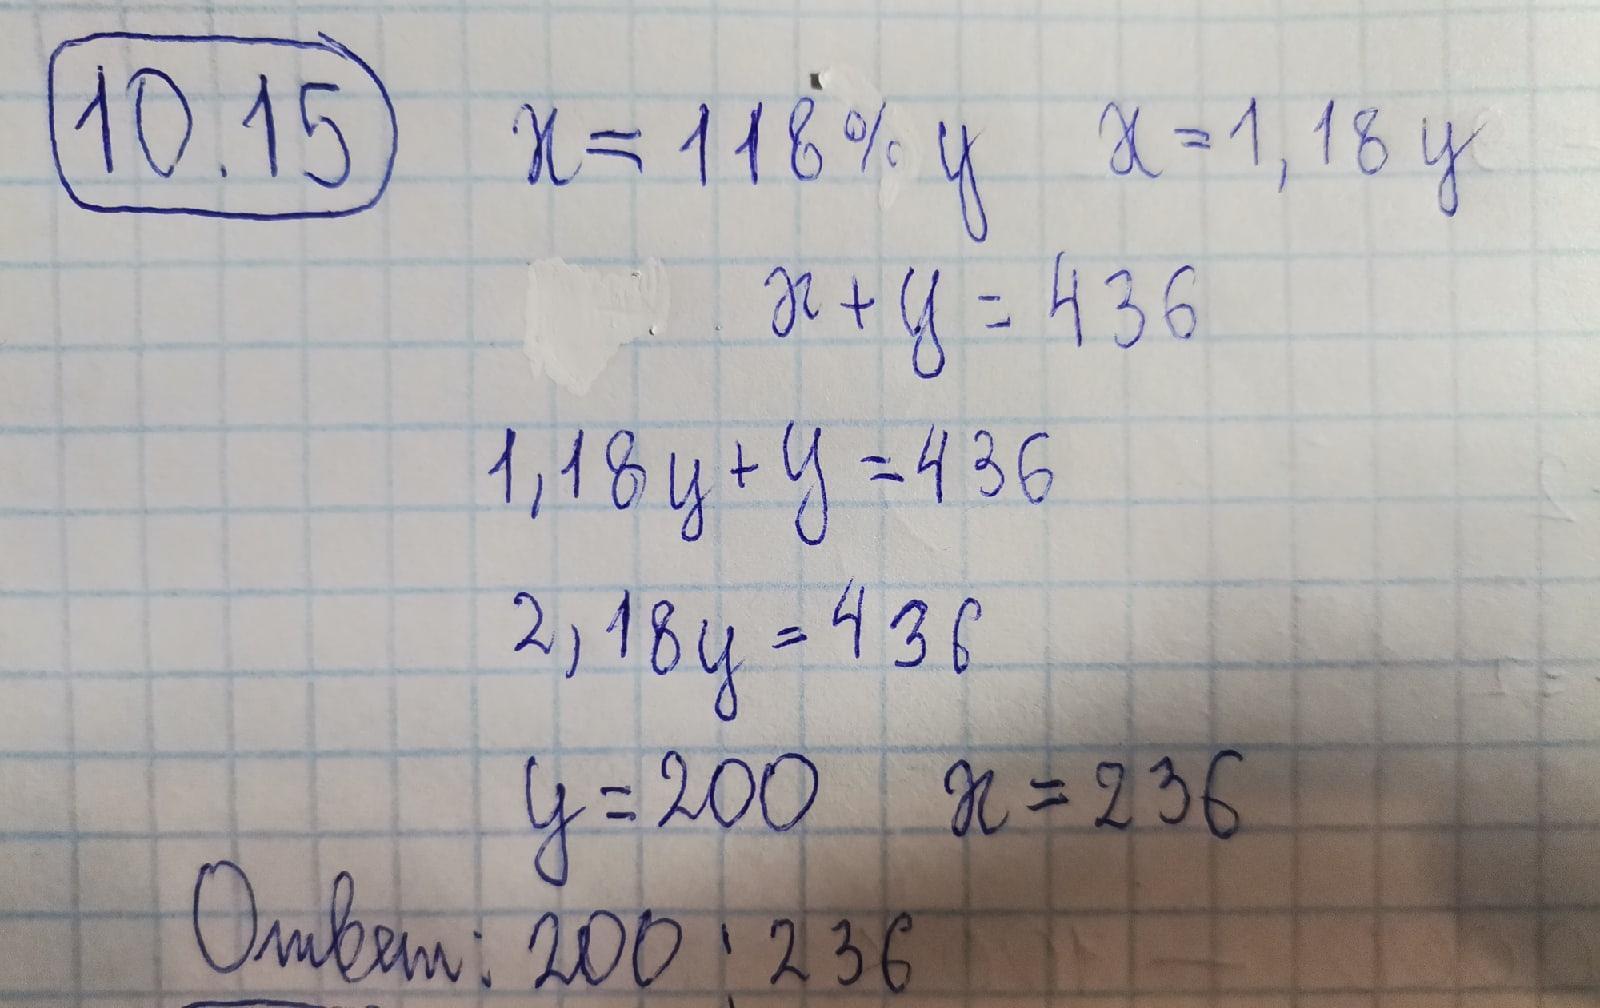 10.15 x = 118% y x = 1,18 y
x + y = 436
1,18 y + y = 436
2,18y = 436
y = 200 x = 236
Ответ: 200 ; 236